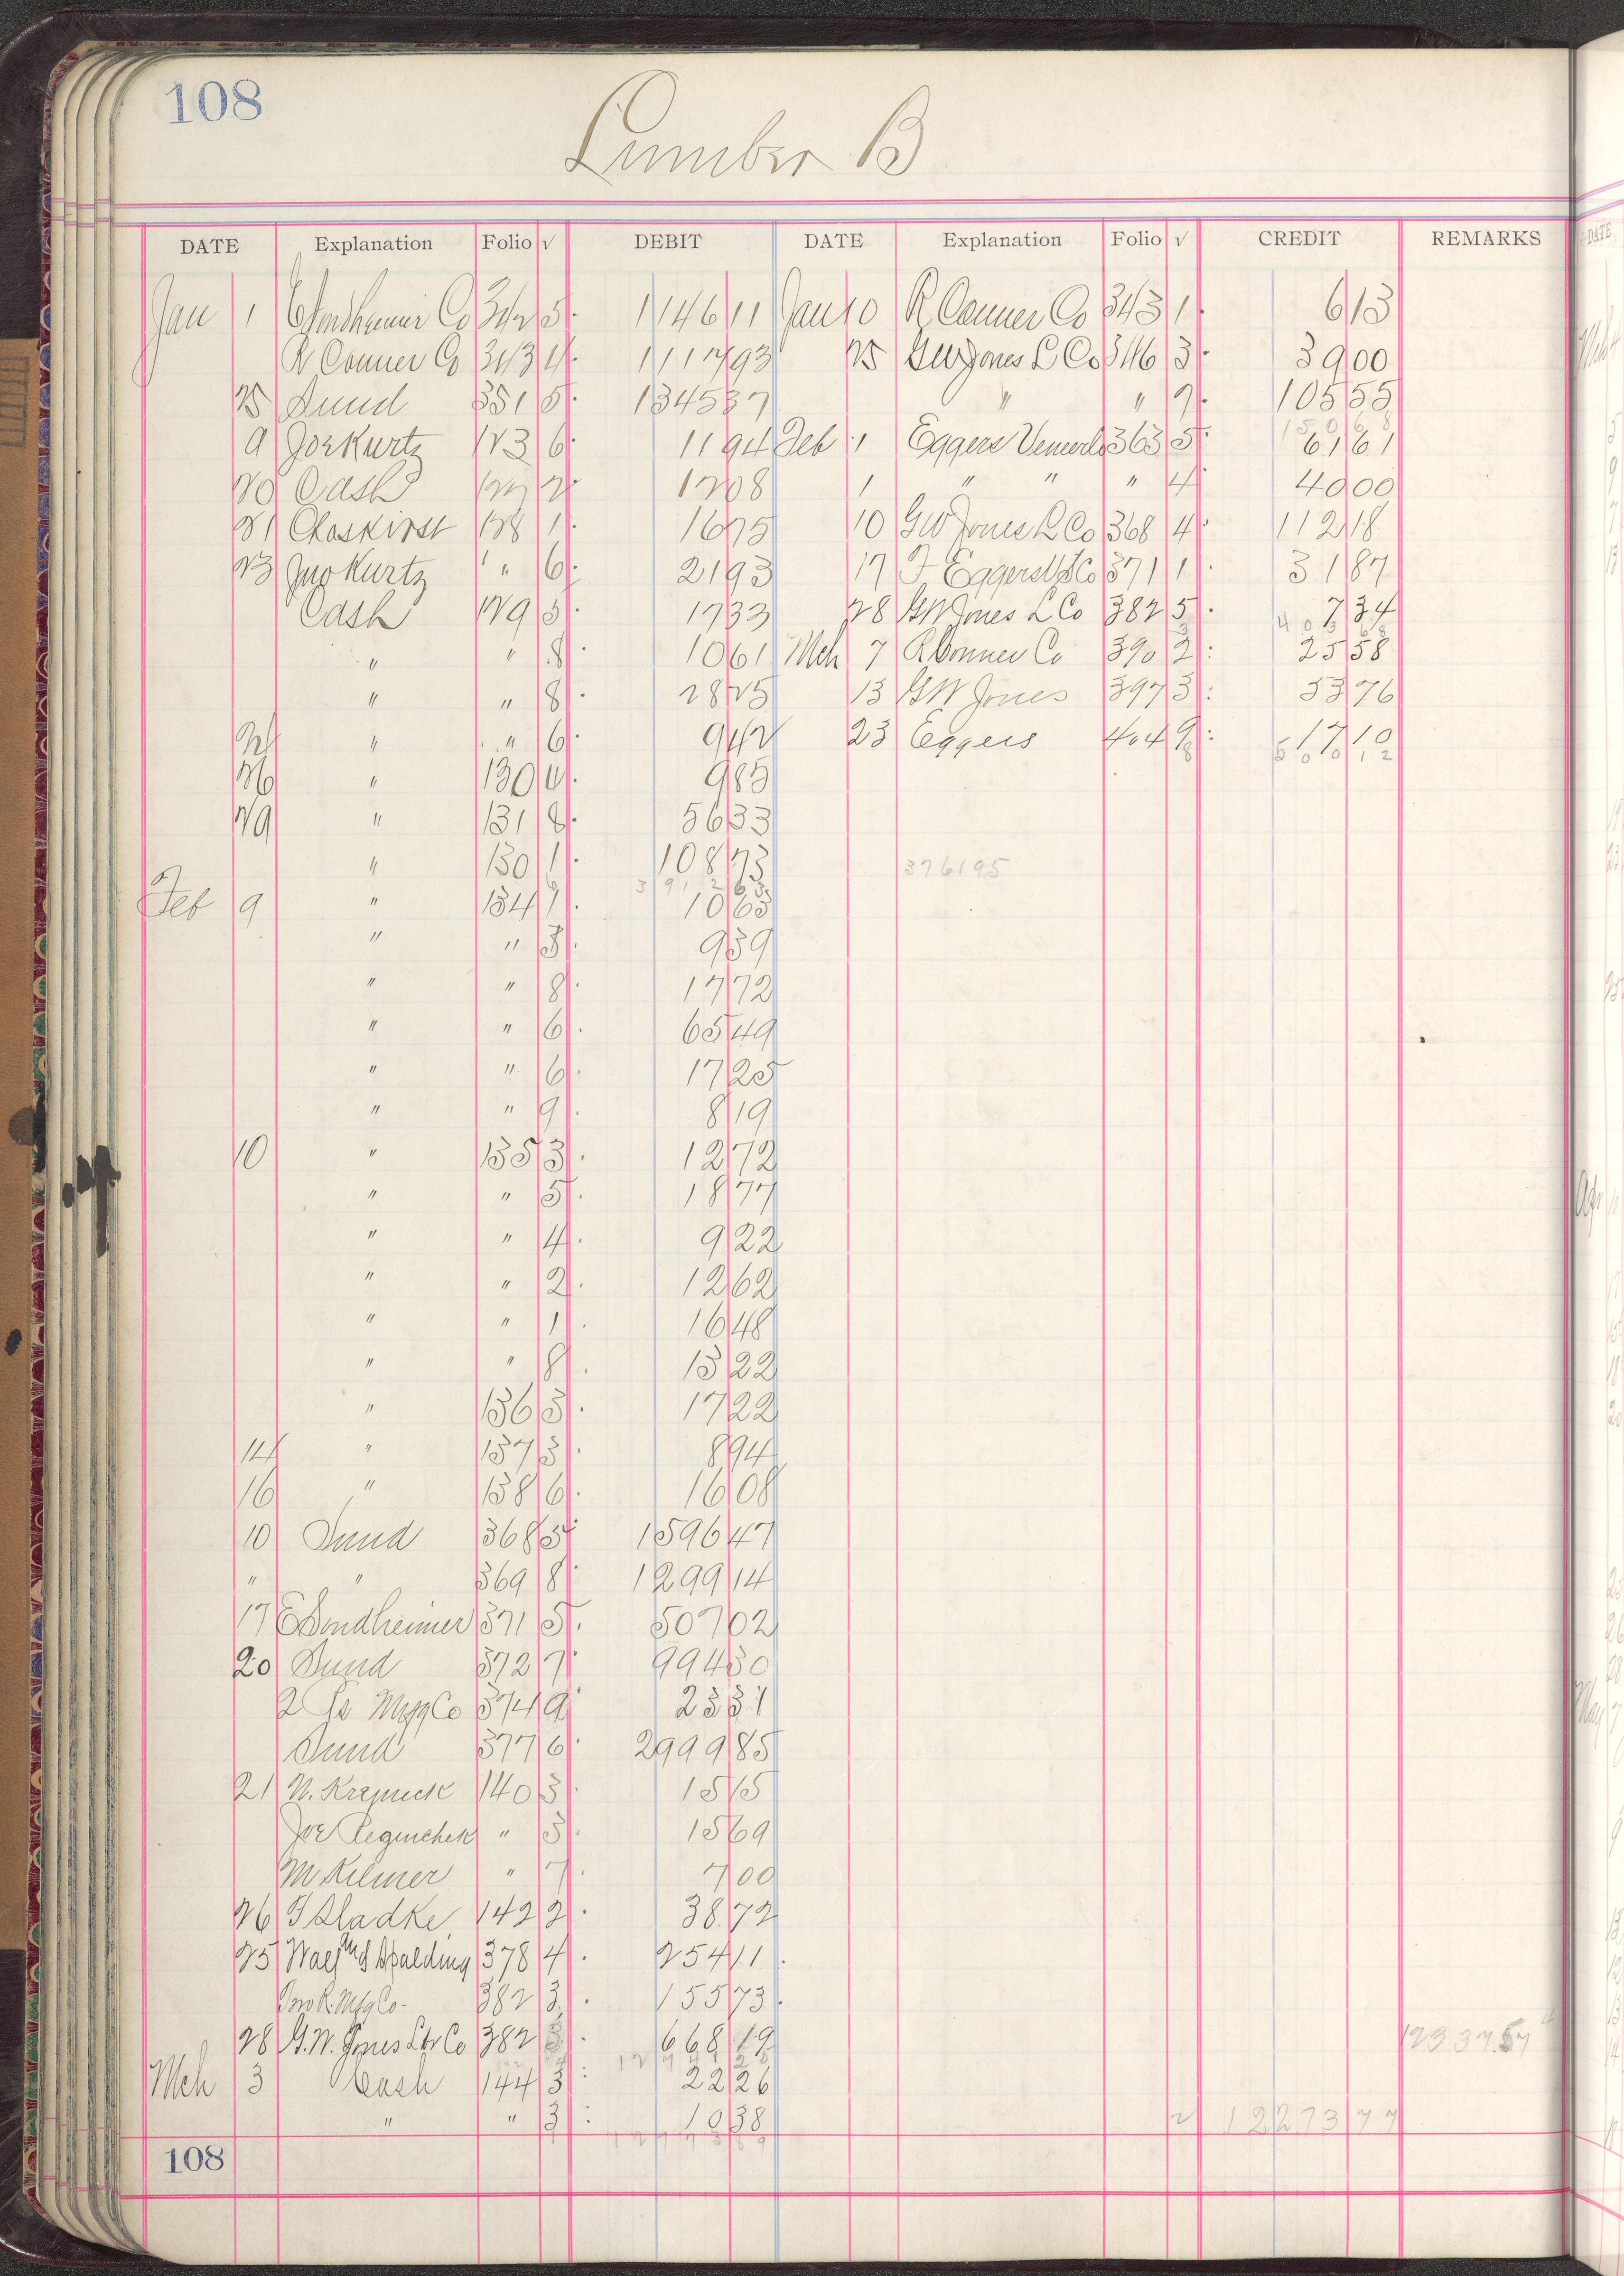 108
Lumber B
DATE Explanation Folio √ DEBIT DATE Explanation Folio √ CREDIT REMARKS
Jan 1 E Sondheimer Co 342 5 1146 11 Jan 10 R Conner Co 343 1 6 13
R Conner Co 343 4 1117 93 25 GW Jones L Co 346 3 39 00
25 Sund 351 5 1345 37 " " 9 105 55
9 Joe Kurtz 123 6 11 94 Feb 1 Eggers Veneer 363 5 61 61
20 Cash 127 2 12 08 1 " " " 4 40 00
21 Chas Kirst 128 1 16 75 10 GW Jones L Co 368 4 112 18
23 Jno Kurtz " 6 21 93 17 F Eggers Co 371 1 31 87
Cash 129 5 17 33 28 GW Jones L Co 382 5 7 34
" " 8 10 61 Mch 7 R Conner Co 390 2 25 58
" " 8 28 25 13 GW Jones 397 3 53 76
24 " " 6 9 42 23 Eggers 404 9 17 10
26 " 130 4 9 85
29 " 131 8 56 33
" 130 1 108 73 3761 95
Feb 9 " 134 1 10 63
" " 3 9 39
" " 8 17 72
" " 6 65 49
" " 6 17 25
" " 9 8 19
10 " 135 3 12 72
" " 5 18 77
" " 4 9 22
" " 2 12 62
" " 1 16 48
" " 8 13 22
" 136 3 17 22
14 " 137 3 8 94
16 " 138 6 16 08
10 Sund 368 5 1596 47
" " 369 8 1299 14
17 E Sondheimer 371 5 507 02
20 Sund 372 7 994 30
2 Mfg Co 374 9 23 31
Sund 377 6 2999 85
21 140 3 15 15
Joe " 3 15 69
M Kilmer " 7 7 00
26 Sladke 142 2 38 72
25 Spalding 378 4 254 11
Mfg Co 382 3 155 73
28 G.W. Jones Lbr Co 382 668 19 12337.57
Mch 3 Cash 144 3 22 26
" " 3 10 38 12273 77
108